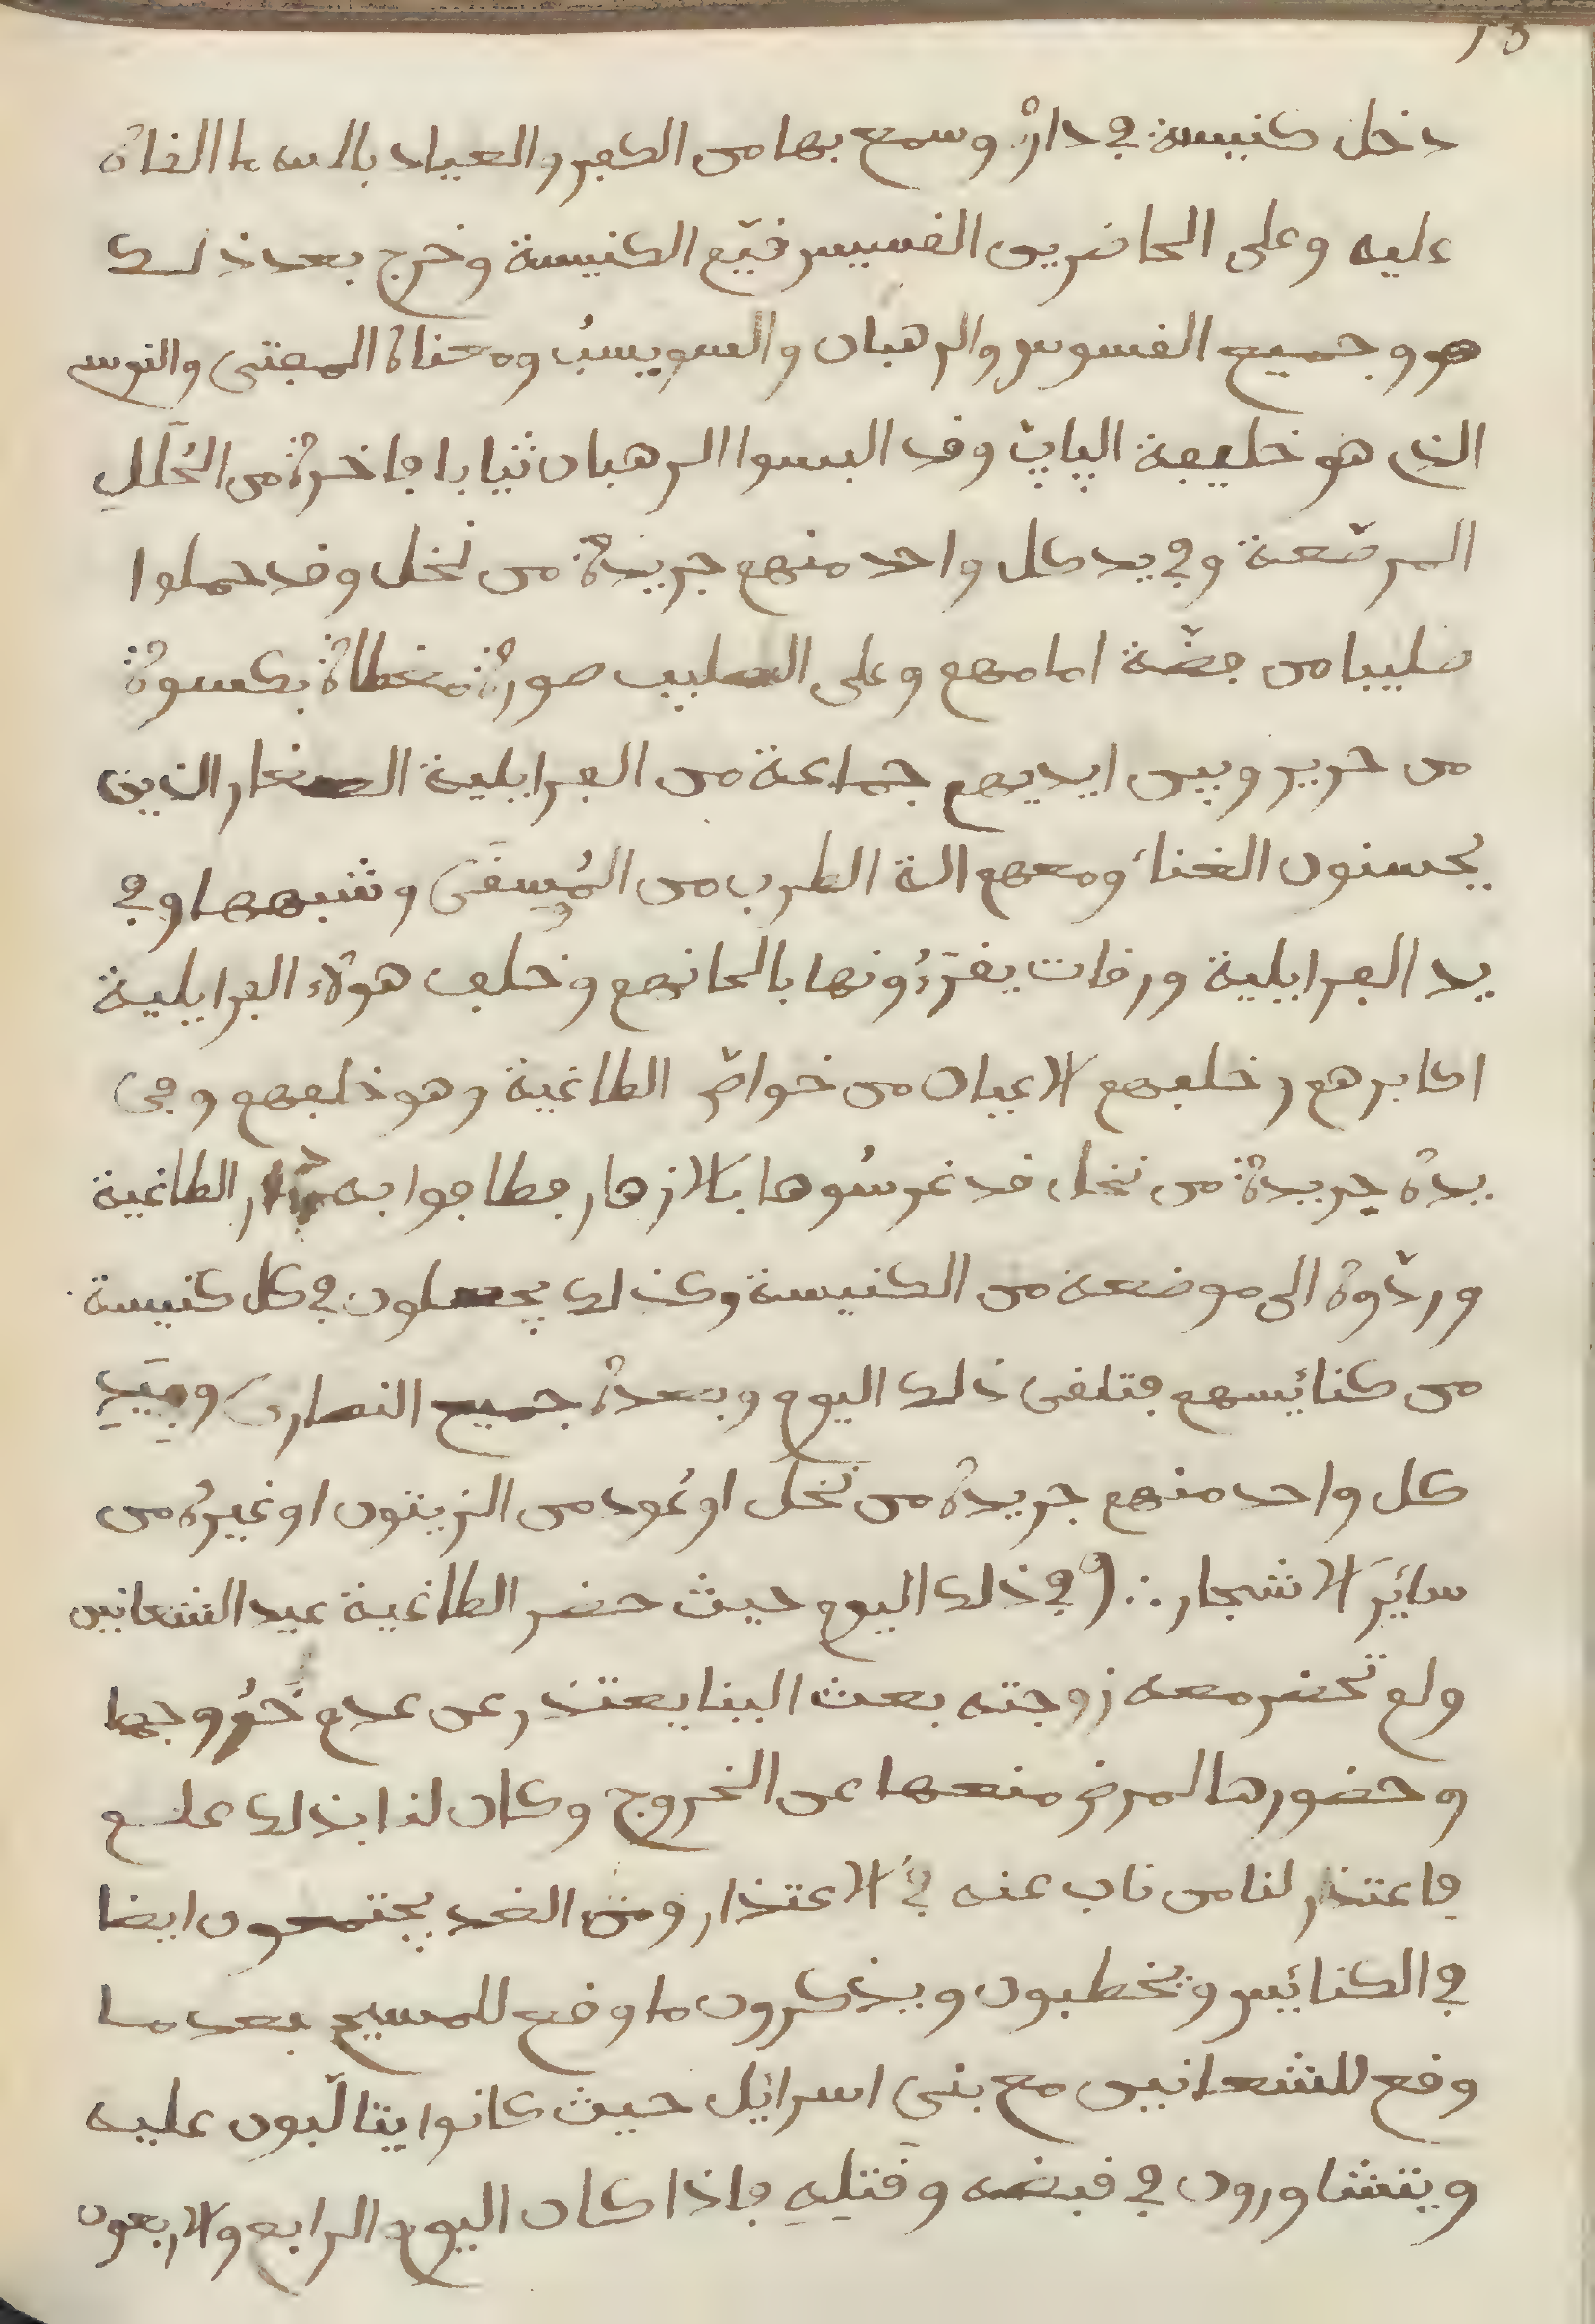 دخل كنيسة في داره وسمع بها من الكفر والعياذ بالله ما القاه
عليه وعلى الحاضرين القسيس قيّم الكنيسة وخرج بعد ذلك
هو وجميع القسوس والرهبان والسويسب ومعناه المفتى والنونس
الذي هو خليفة الپاپ وقد البسوا الرهبان ثيابا فاخرة من الحُلَلِ
المرصّعة وفي يد كل واحد منهم جريدة من نخل وقد حملوا
صليبا من فضّة امامهم وعلى الصليب صورة مغطاة بكسوة
من حرير وبين ايديهم جماعة من الفرايلية الصغار الذين
يحسنون الغناء ومعهم الة الطرب من المُوسِقَى وشبهها وفي
يد الفرايلية ورقات يقرءُونها بالحانهم وخلف هولاء الفرايلية
اكابرهم وخلفهم الاعيان من خواصّ الطاغية وهو خلفهم وفي
يده جريدة من نخل قد غرسُوها بالازهار فطافوا به دار الطاغية
وردّوه الى موضعه من الكنيسة وكذلك يفعلون في كل كنيسة
من كنائيسهم فتلقى ذلك اليوم وبعده جميع النصارى وبِيَدِ
كل واحد منهم جريدة من نخل او عُود من الزيتون او غيره من
سائيرَ الاشجار ∴ وفي ذلك اليوم حيث حضر الطاغية عيد الشعانين
ولم تحضر معه زوجته بعث الينا يعتذر عن عدم خُروجها
وحضورها لمرض منعها عن الخروج وكان لنا بذلك علم
فاعتذر لنا من ناب عنه في الاعتذار ومن الغد يجتمعون ايضا
في الكنائيس ويخطبون ويذكرون ما وقع للمسيح بعد ما
وقع للشعانين مع بنى اسرائيل حيث كانوا يتالّبون عليه
ويتشاورون في قبضه وقَتْلِهِ فاذا كان اليوم الرابع والاربعون